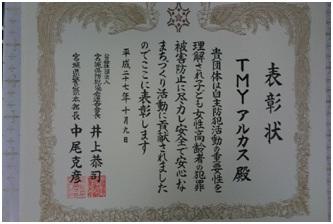 表彰状
TMYアルカス 殿
貴団体は自主防犯活動の重要性を
理解され子ども女性高齢者の犯罪
被害防止に尽力し安全で安心な
まちづくり活動に貢献されました
のでここに表彰します
平成二十七年十月九日
公益社団法人
宮城県防犯協会連合会長 井上恭司
宮城県警察本部長 中尾克彦